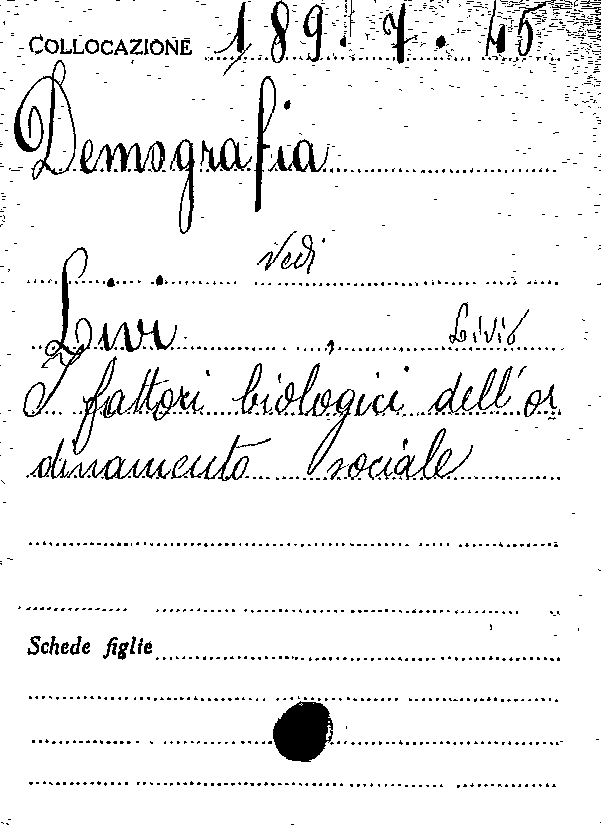 COLLOCAZIONE 189.7.45
Demografia
Vedi
Livi, Livio
I fattori biologici dell'or
dinamento sociale
Schede figlie